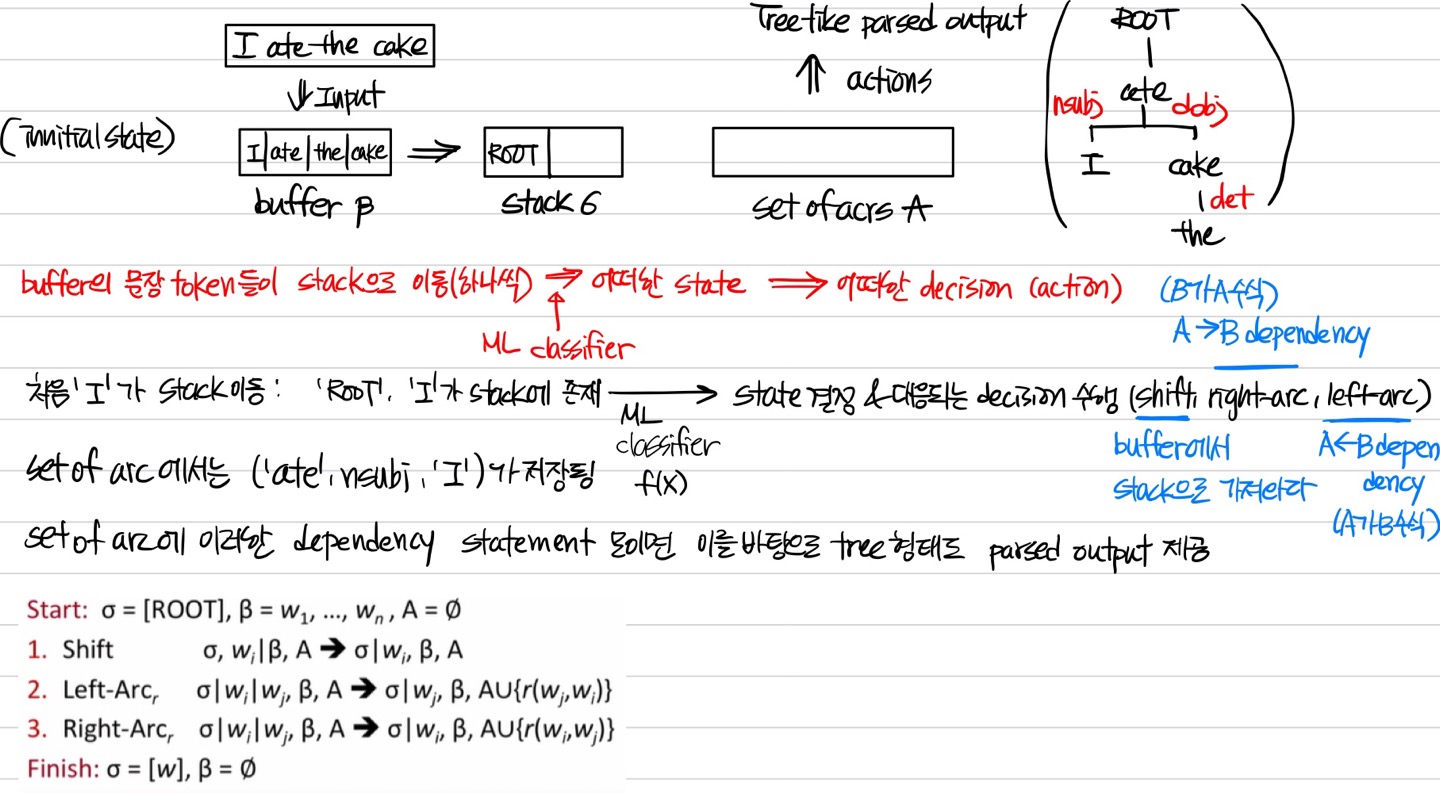 I ate the cake
⇓ Input
(innitial state)
I | ate | the | cake ⇒ ROOT
buffer β
stack σ
set of acrs A
Tree like parsed output
⇑ actions
ROOT
ate
nsubj dobj
I cake
det
the
buffer의 문장 token들이 stack으로 이동(하나씩) ⇒ 어떠한 state ⇒ 어떠한 decision (action)
ML classifier
(B가 A 수식)
A → B dependency
처음 'I'가 stack 이동 : 'ROOT', 'I'가 stack에 존재 → state 결정 & 대응되는 decision 수행 (shift, right-arc, left-arc)
ML
classifier
f(x)
buffer에서
stack으로 가져와라
A ← B depen
dency
(A가 B 수식)
set of arc 에서는 ('ate', nsubj, 'I')가 저장됨
set of arc에 이러한 dependency statement 모이면 이를 바탕으로 tree 형태로 parsed output 제공
Start: σ = [ROOT], β = w1, ..., wn , A = ∅
1. Shift σ, wi|β, A ➔ σ|wi, β, A
2. Left-Arcr σ|wi|wj, β, A ➔ σ|wj, β, A∪{r(wj,wi)}
3. Right-Arcr σ|wi|wj, β, A ➔ σ|wi, β, A∪{r(wi,wj)}
Finish: σ = [w], β = ∅